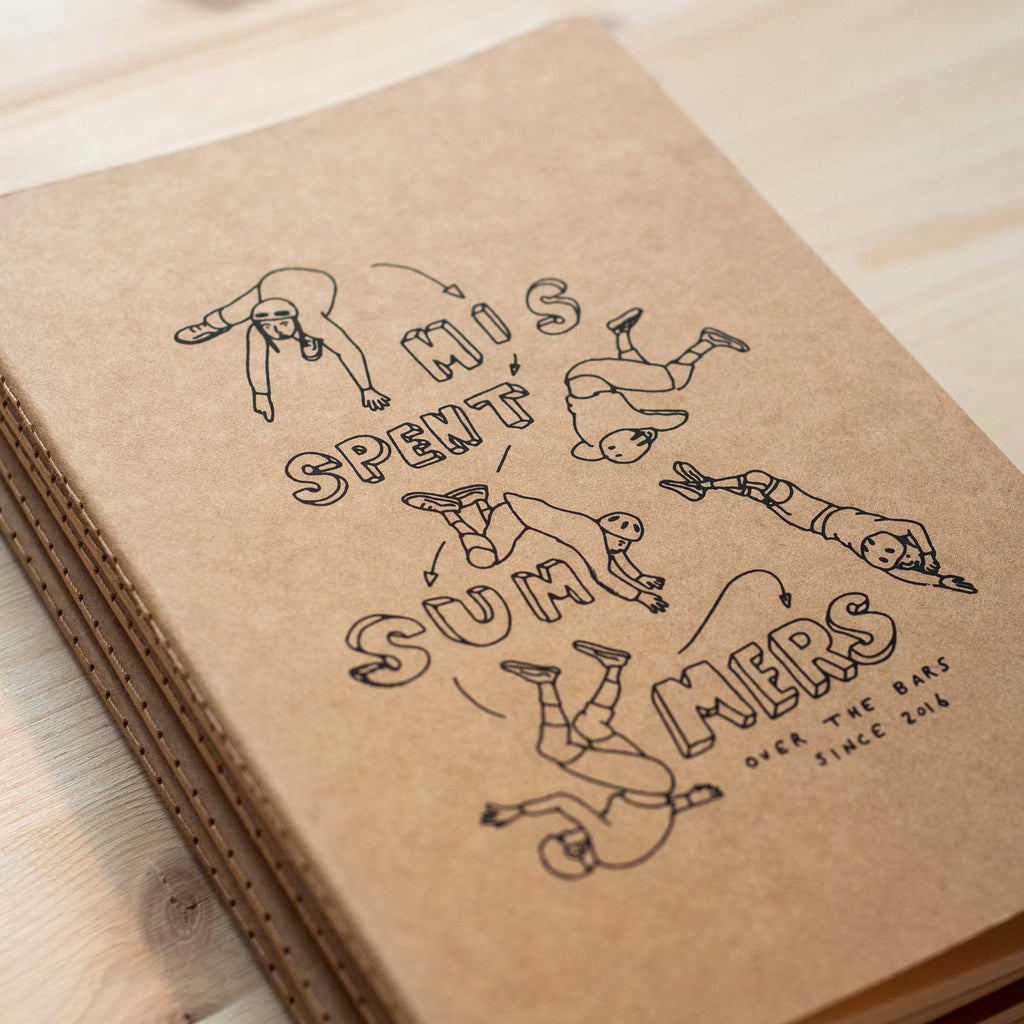 MIS
SPENT
SUM
MERS
OVER THE BARS
SINCE 2016